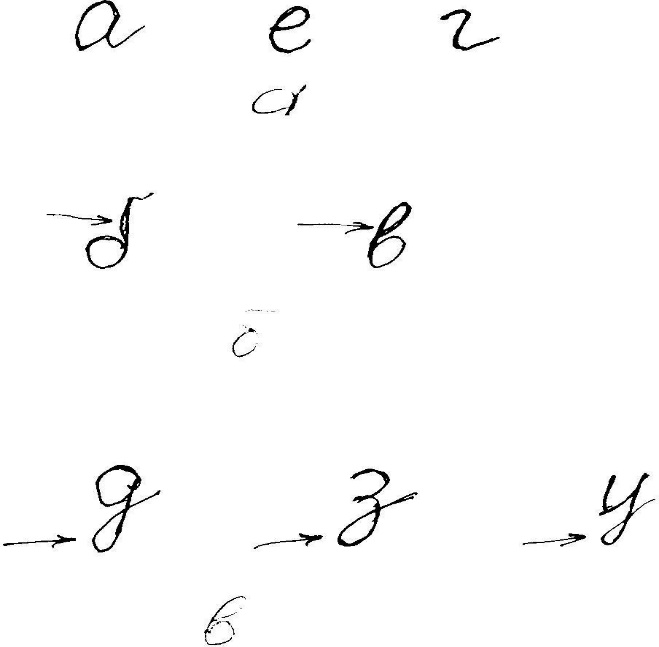 а е г
а
б в
б
д з у
в